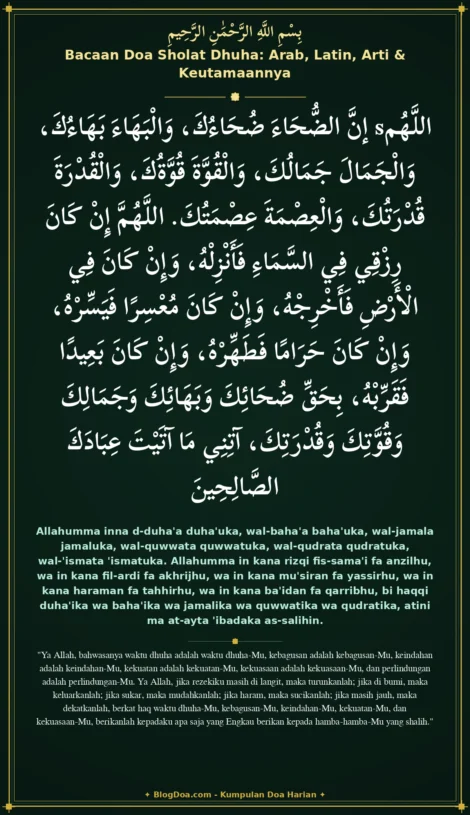 بِسْمِ اللَّهِ الرَّحْمَٰنِ الرَّحِيمِ
Bacaan Doa Sholat Dhuha: Arab, Latin, Arti &
Keutamaannya
اللَّهُمs إِنَّ الضُّحَاءَ ضُحَاءُكَ، وَالْبَهَاءَ بَهَاءُكَ،
وَالْجَمَالَ جَمَالُكَ، وَالْقُوَّةَ قُوَّتُكَ، وَالْقُدْرَةَ
قُدْرَتُكَ، وَالْعِصْمَةَ عِصْمَتُكَ. اللَّهُمَّ إِنْ كَانَ
رِزْقِي فِي السَّمَاءِ فَأَنْزِلْهُ، وَإِنْ كَانَ فِي
الْأَرْضِ فَأَخْرِجْهُ، وَإِنْ كَانَ مُعْسِرًا فَيَسِّرْهُ،
وَإِنْ كَانَ حَرَامًا فَطَهِّرْهُ، وَإِنْ كَانَ بَعِيدًا
فَقَرِّبْهُ، بِحَقِّ ضُحَائِكَ وَبَهَائِكَ وَجَمَالِكَ
وَقُوَّتِكَ وَقُدْرَتِكَ، آتِنِي مَا آتَيْتَ عِبَادَكَ
الصَّالِحِينَ
Allahumma inna d-duha'a duha'uka, wal-baha'a baha'uka, wal-jamala
jamaluka, wal-quwwata quwwatuka, wal-qudrata qudratuka,
wal-'ismata 'ismatuka. Allahumma in kana rizqi fis-sama'i fa anzilhu,
wa in kana fil-ardi fa akhrijhu, wa in kana mu'siran fa yassirhu, wa in
kana haraman fa tahhirhu, wa in kana ba'idan fa qarribhu, bi haqqi
duha'ika wa baha'ika wa jamalika wa quwwatika wa qudratika, atini
ma at-ayta 'ibadaka as-salihin.
"Ya Allah, bahwasanya waktu dhuha adalah waktu dhuha-Mu, kebagusan adalah kebagusan-Mu, keindahan
adalah keindahan-Mu, kekuatan adalah kekuatan-Mu, kekuasaan adalah kekuasaan-Mu, dan perlindungan
adalah perlindungan-Mu. Ya Allah, jika rezekiku masih di langit, maka turunkanlah; jika di bumi, maka
keluarkanlah; jika sukar, maka mudahkanlah; jika haram, maka sucikanlah; jika masih jauh, maka
dekatkanlah, berkat haq waktu dhuha-Mu, kebagusan-Mu, keindahan-Mu, kekuatan-Mu, dan
kekuasaan-Mu, berikanlah kepadaku apa saja yang Engkau berikan kepada hamba-hamba-Mu yang shalih."
✦ BlogDoa.com - Kumpulan Doa Harian ✦